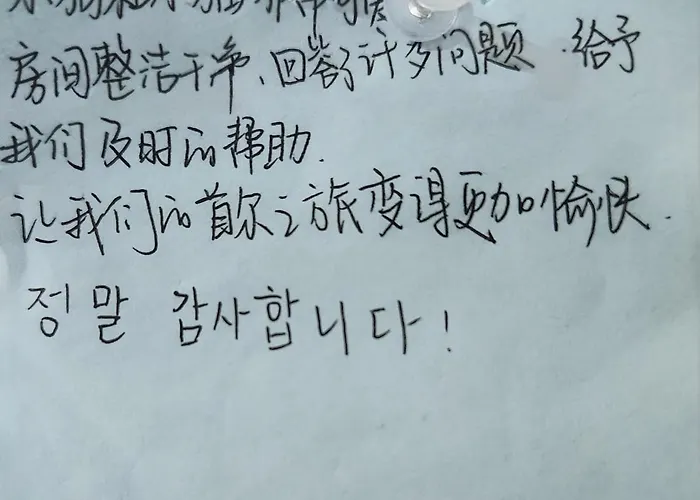 房间整洁干净、回答了许多问题.给予
我们及时的帮助.
让我们的首尔之旅变得更加愉快.
정말 감사합니다!